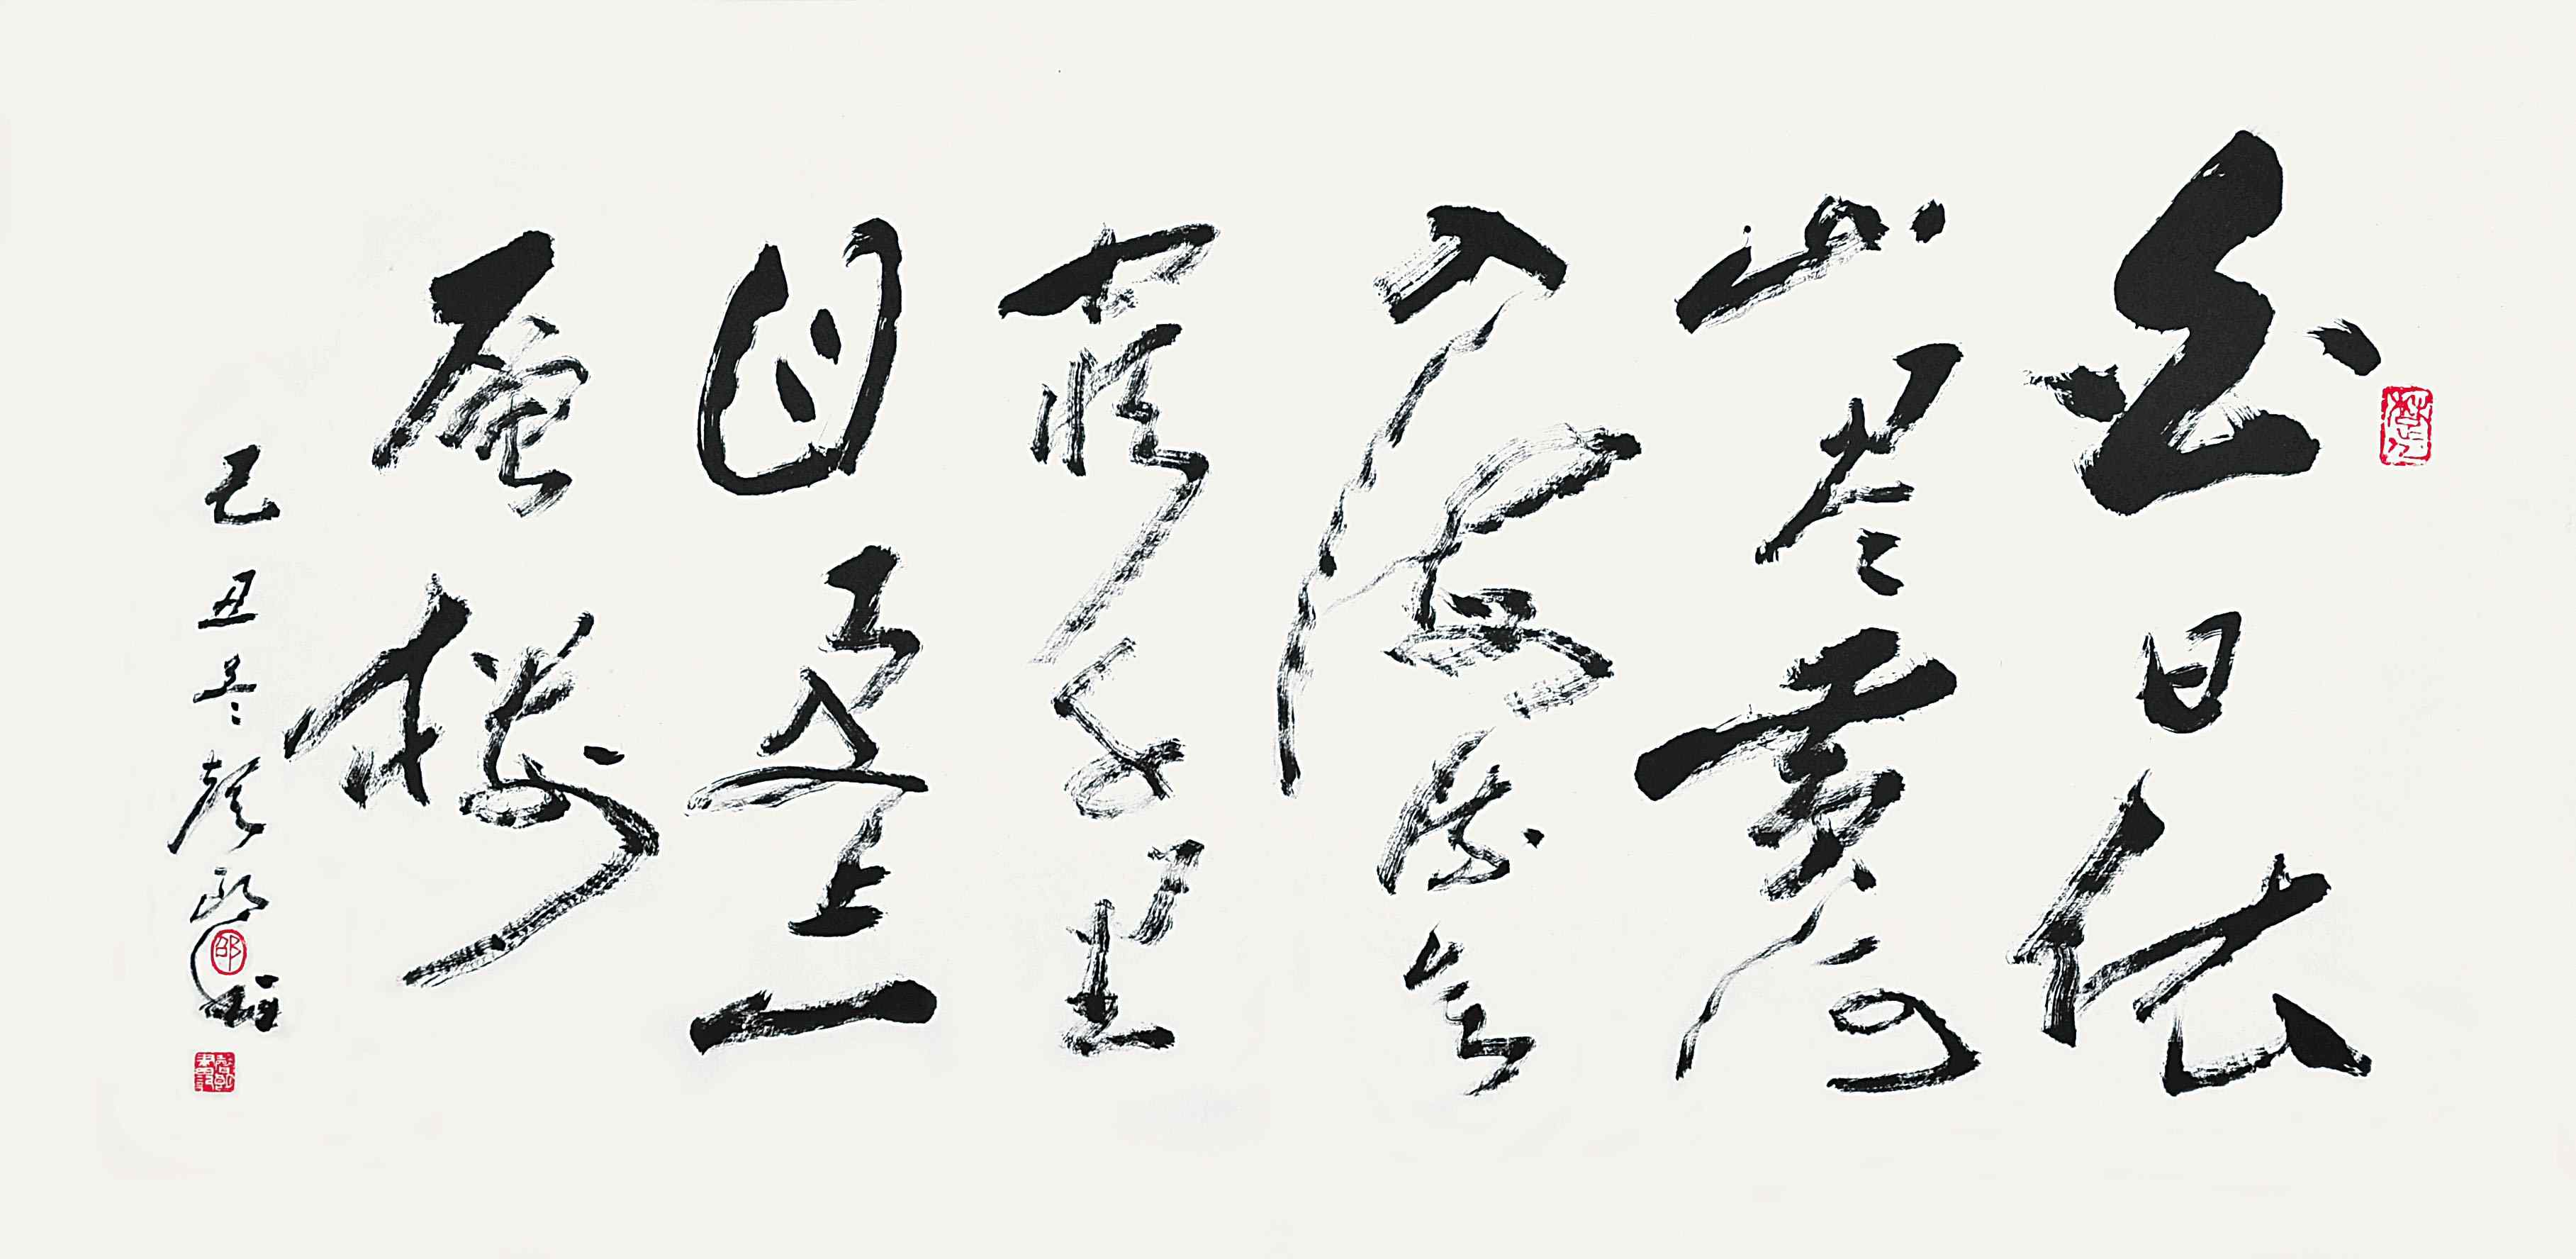 白日依
山尽黄河
入海流欲
穷千里
目更上一
层楼
己丑冬
邵